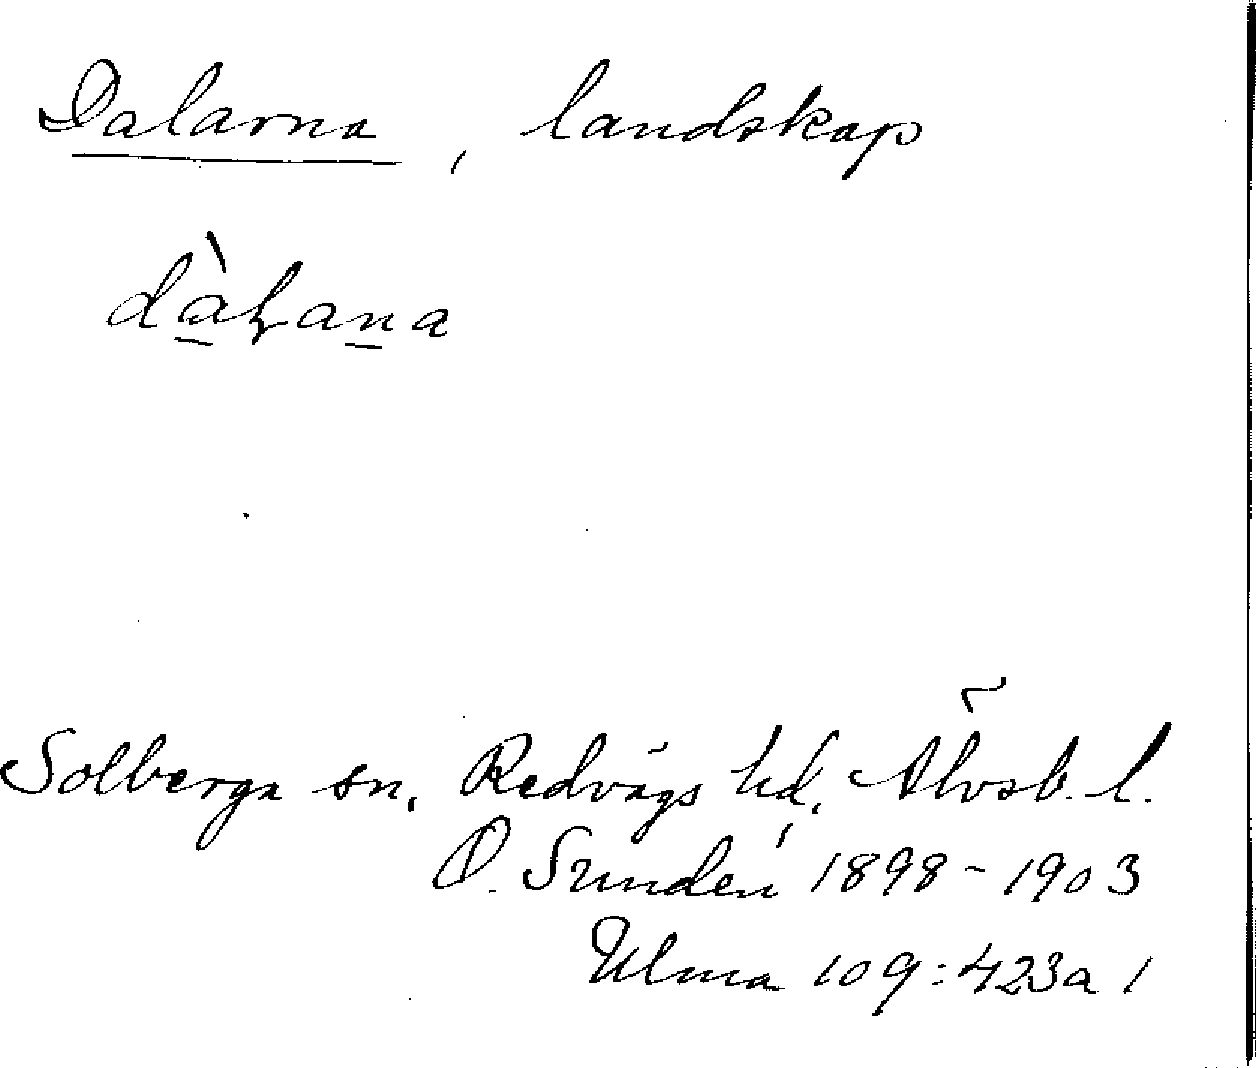 Dalarna, landskap
dàɽana
Solberga sn. Redvägs hd. Älvsb. l.
O. Sundén 1898-1903
Ulma 109:423a 1